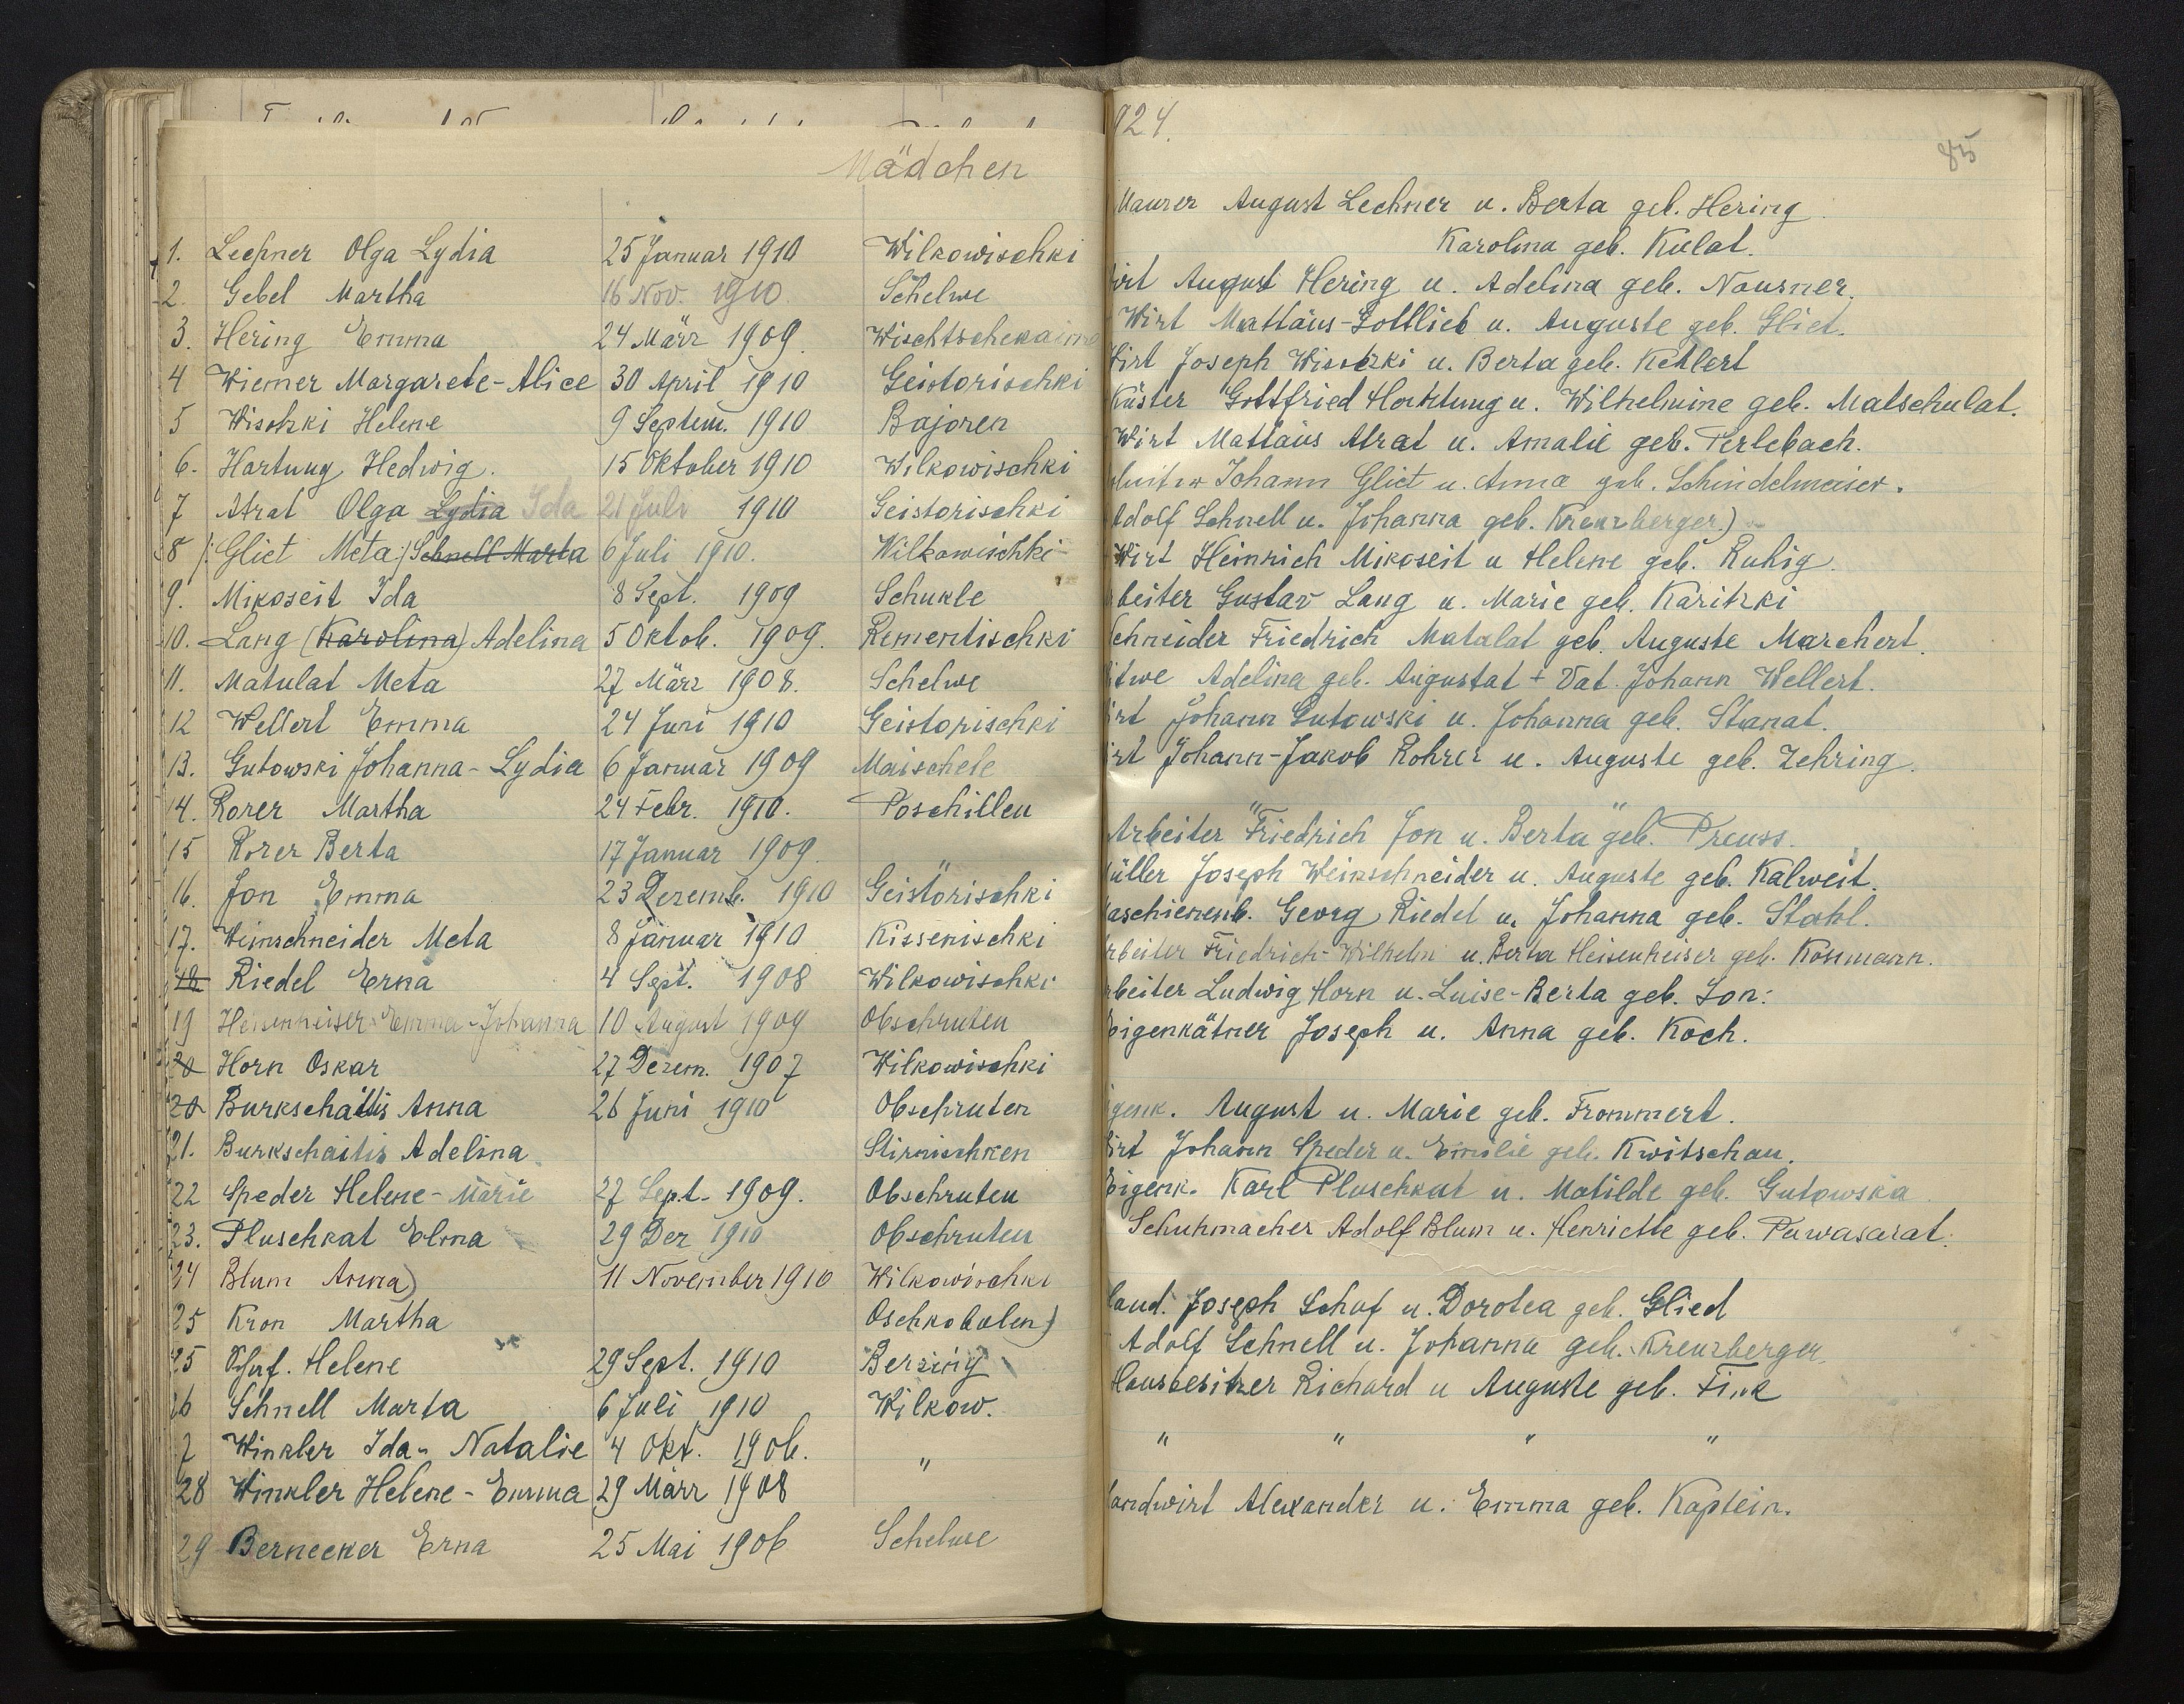 Mädchen
1. Lechner Olga Lydia 25 Januar 1910 Wilkowischki
2. Gebel Martha 16 Nov. 1910. Schelwe
3. Hering Emma 24 März 1909.
4 Wiemer Margarete-Alice 30 April 1910 Geistorischki
5 Wisotzki Helene 9 Septem. 1910 Bajoren
6. Hartung Hedwig. 15 Oktober 1910 Wilkowischki
7 Atrat Olga Lydia Ida 21 Juli 1910 Geistorischki
8 /: Gliet Meta :/ Schnell Marta 6 Juli 1910. Wilkowischki
9. Mikoseit Ida 8 Sept. 1909 Schukle
10. Lang (Karolina) Adelina 5 Oktob. 1909. Rementischki
11. Matulat Meta 27 März 1908. Schelwe
12 Wellert Emma 24 Juni 1910 Geistorischki
13. Gutowski Johanna-Lydia 6 Januar 1909 Maischele
14. Rorer Martha 24 Febr. 1910. Poschillen
15 Rorer Berta 17 Januar 1909. "
16. Jon Emma 23 Dezemb. 1910 Geistorischki
17. Weinschneider Meta 8 Januar 1910 Kissenischki
18 Riedel Erna 4 Sept. 1908 Wilkowischki
19 Heisenheiser Emma-Johanna 10 August 1909 Obschruten
20 Horn Oskar 27 Dezem. 1907 Wilkowischki
20 Burkschaitis Anna 26 Juni 1910 Obschruten
21. Burkschaitis Adelina Stirnischken
22 Speder Helene-Marie 27 Sept. 1909. Obschruten
23. Pluschkat Elma 29 Dez 1910 Obschruten
24 Blum Anna) 11 November 1910 Wilkowischki
25 Kron Martha Oschkobalen)
25 Schuf. Helene 29 Sept. 1910 Berziny
26 Schnell Marta 6 Juli 1910 Wilkow.
7 Winkler Ida-Natalie 4 Okt. 1906. "
28 Winkler Helene-Emma 29 März 1908
29 Bernecker Erna 25 Mai 1906 Schelwe
924.
85
Maurer August Lechner u. Berta geb. Hering
Karolina geb. Kulat.
irt August Hering u. Adelina geb. Nausner.
Wirt Mattäus-Gottlieb u. Auguste geb. Gliet.
Wirt Joseph Wisotzki u. Berta geb. Kehlert
Küster Gottfried Hartung u. Wilhelmine geb. Matschulat.
Wirt Mattäus Atrat u. Amalie geb. Perlebach.
Johann Gliet u. Anna geb. Schindelmeiser.
Adolf Schnell u. Johanna geb. Kreuzberger.)
Wirt Heinrich Mikoseit u Helene geb. Ruhig.
beiter Gustav Lang u. Marie geb. Karitzki
chneider Friedrich Matulat geb. Auguste Marchert.
itwe Adelina geb. Augustat + Vat. Johann Wellert.
irt Johann Gutowski u. Johanna geb. Stanat.
irt Johann-Jakob Rohrer u. Auguste geb. Zehring.
" "
Arbeiter Friedrich Jon u. Berta geb. Preuss.
üller Joseph Weinschneider u. Auguste geb. Kalweit.
aschienenb. Georg Riedel u. Johanna geb. Stahl.
rbeiter Friedrich-Wilhelm u. Berta Heisenheiser geb. Kossmann.
rbeiter Ludwig Horn u. Luise-Berta geb. Jon.
igenkätner Joseph u. Anna geb. Koch.
igenk. August u. Marie geb. Frommert.
irt Johann Speder u. Emilie geb. Kwitschau.
Eigenk. Karl Pluschkat u. Matilde geb. Gutowska.
Schuhmacher Adolf Blum u. Henriette geb. Puwasarat.
land. Joseph Schuf u. Dorotea geb. Glied
Adolf Schnell u. Johanna geb. Kreuzberger.
Hausbesitzer Richard u Auguste geb. Fink
" " " "
andwirt Alexander u. Emma geb. Kaptein.